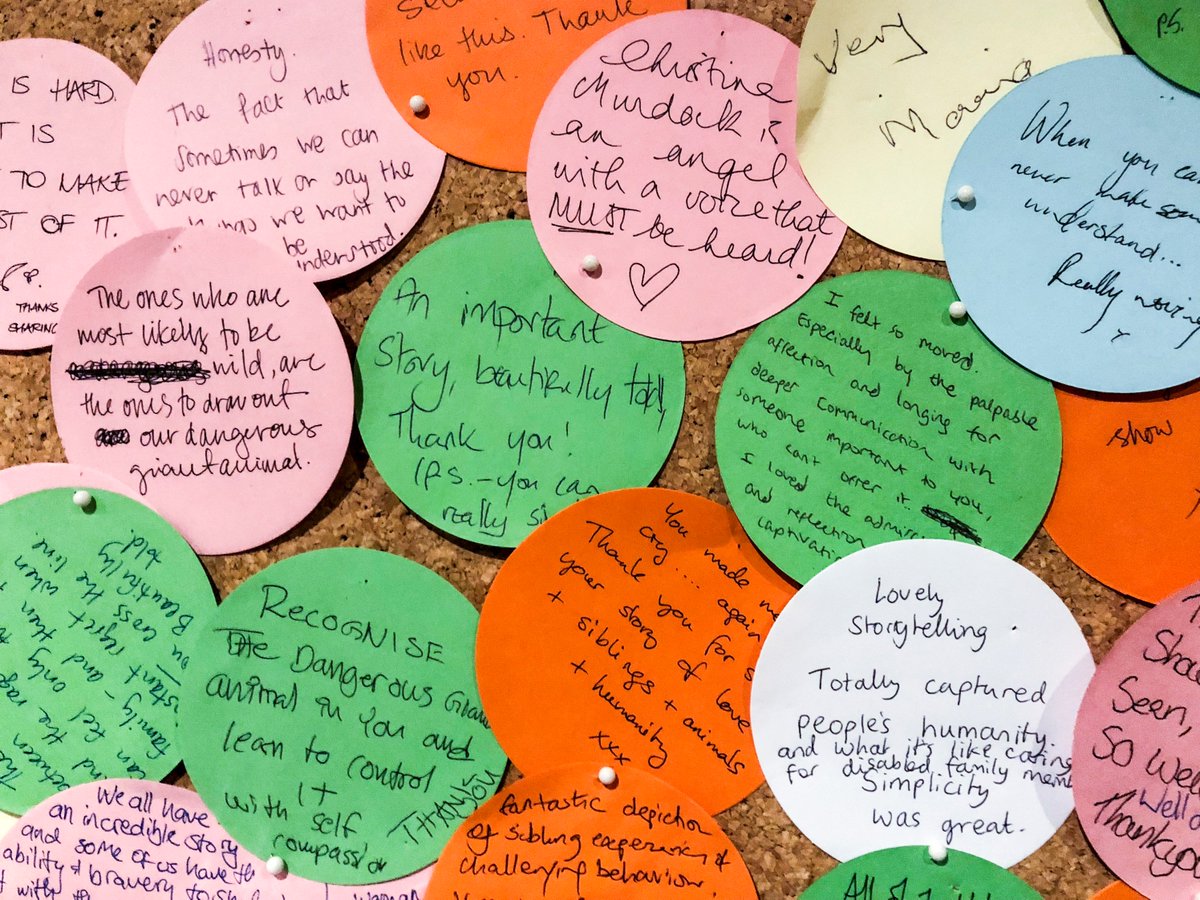 IS HARD.
IS
TO MAKE
OF IT.
THANKS
SHARING
Honesty.
The fact that
sometimes we can
never talk or say the
we want to
be
understood.
like this. Thank
you.
Christine
Murdock is
an angel
with a voice that
MUST be heard!
Very
P.S.
When you
never make
understand...
Really moving
x
The ones who are
most likely to be
wild, are
the ones to draw out
our dangerous
giant animal.
An important
story, beautifully told,
Thank you!
(P.S. - you can
really
I felt so moved.
Especially by the palpable
affection and longing for
deeper communication with
someone important to you,
who can't offer it.
I loved the
and reflection
show
told
Beautifully
cross the line.
regret when
family - and
can feel only
RECOGNISE
The Dangerous
animal in You and
learn to control
it
with self
compassion
THANK
YOU
You made me
cry.... again
Thank you for
your story of love
+ siblings + animals
+ humanity
xxx
Lovely
Storytelling.
Totally captured
people's humanity.
and what it's like caring
for disabled family
Simplicity
was great.
Seen,
So
Well
Thankyou
We all have
an incredible story
and some of us have
ability & bravery to
with
fantastic depiction
of sibling experience &
challenging behaviour.
All of